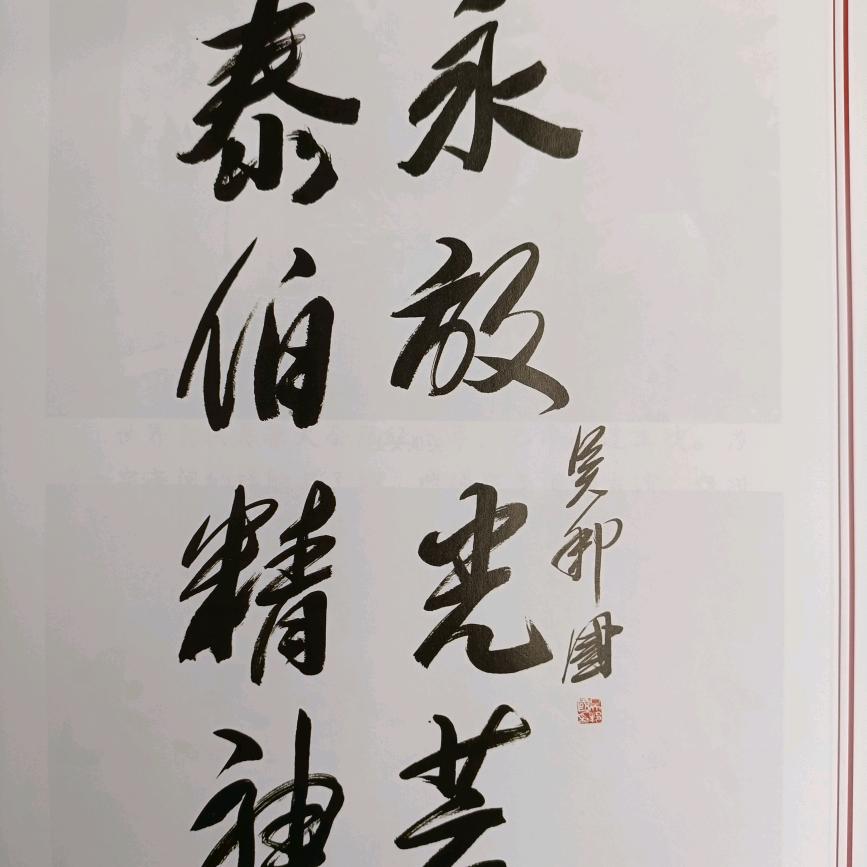 泰伯精神
永放光芒
吴邦国